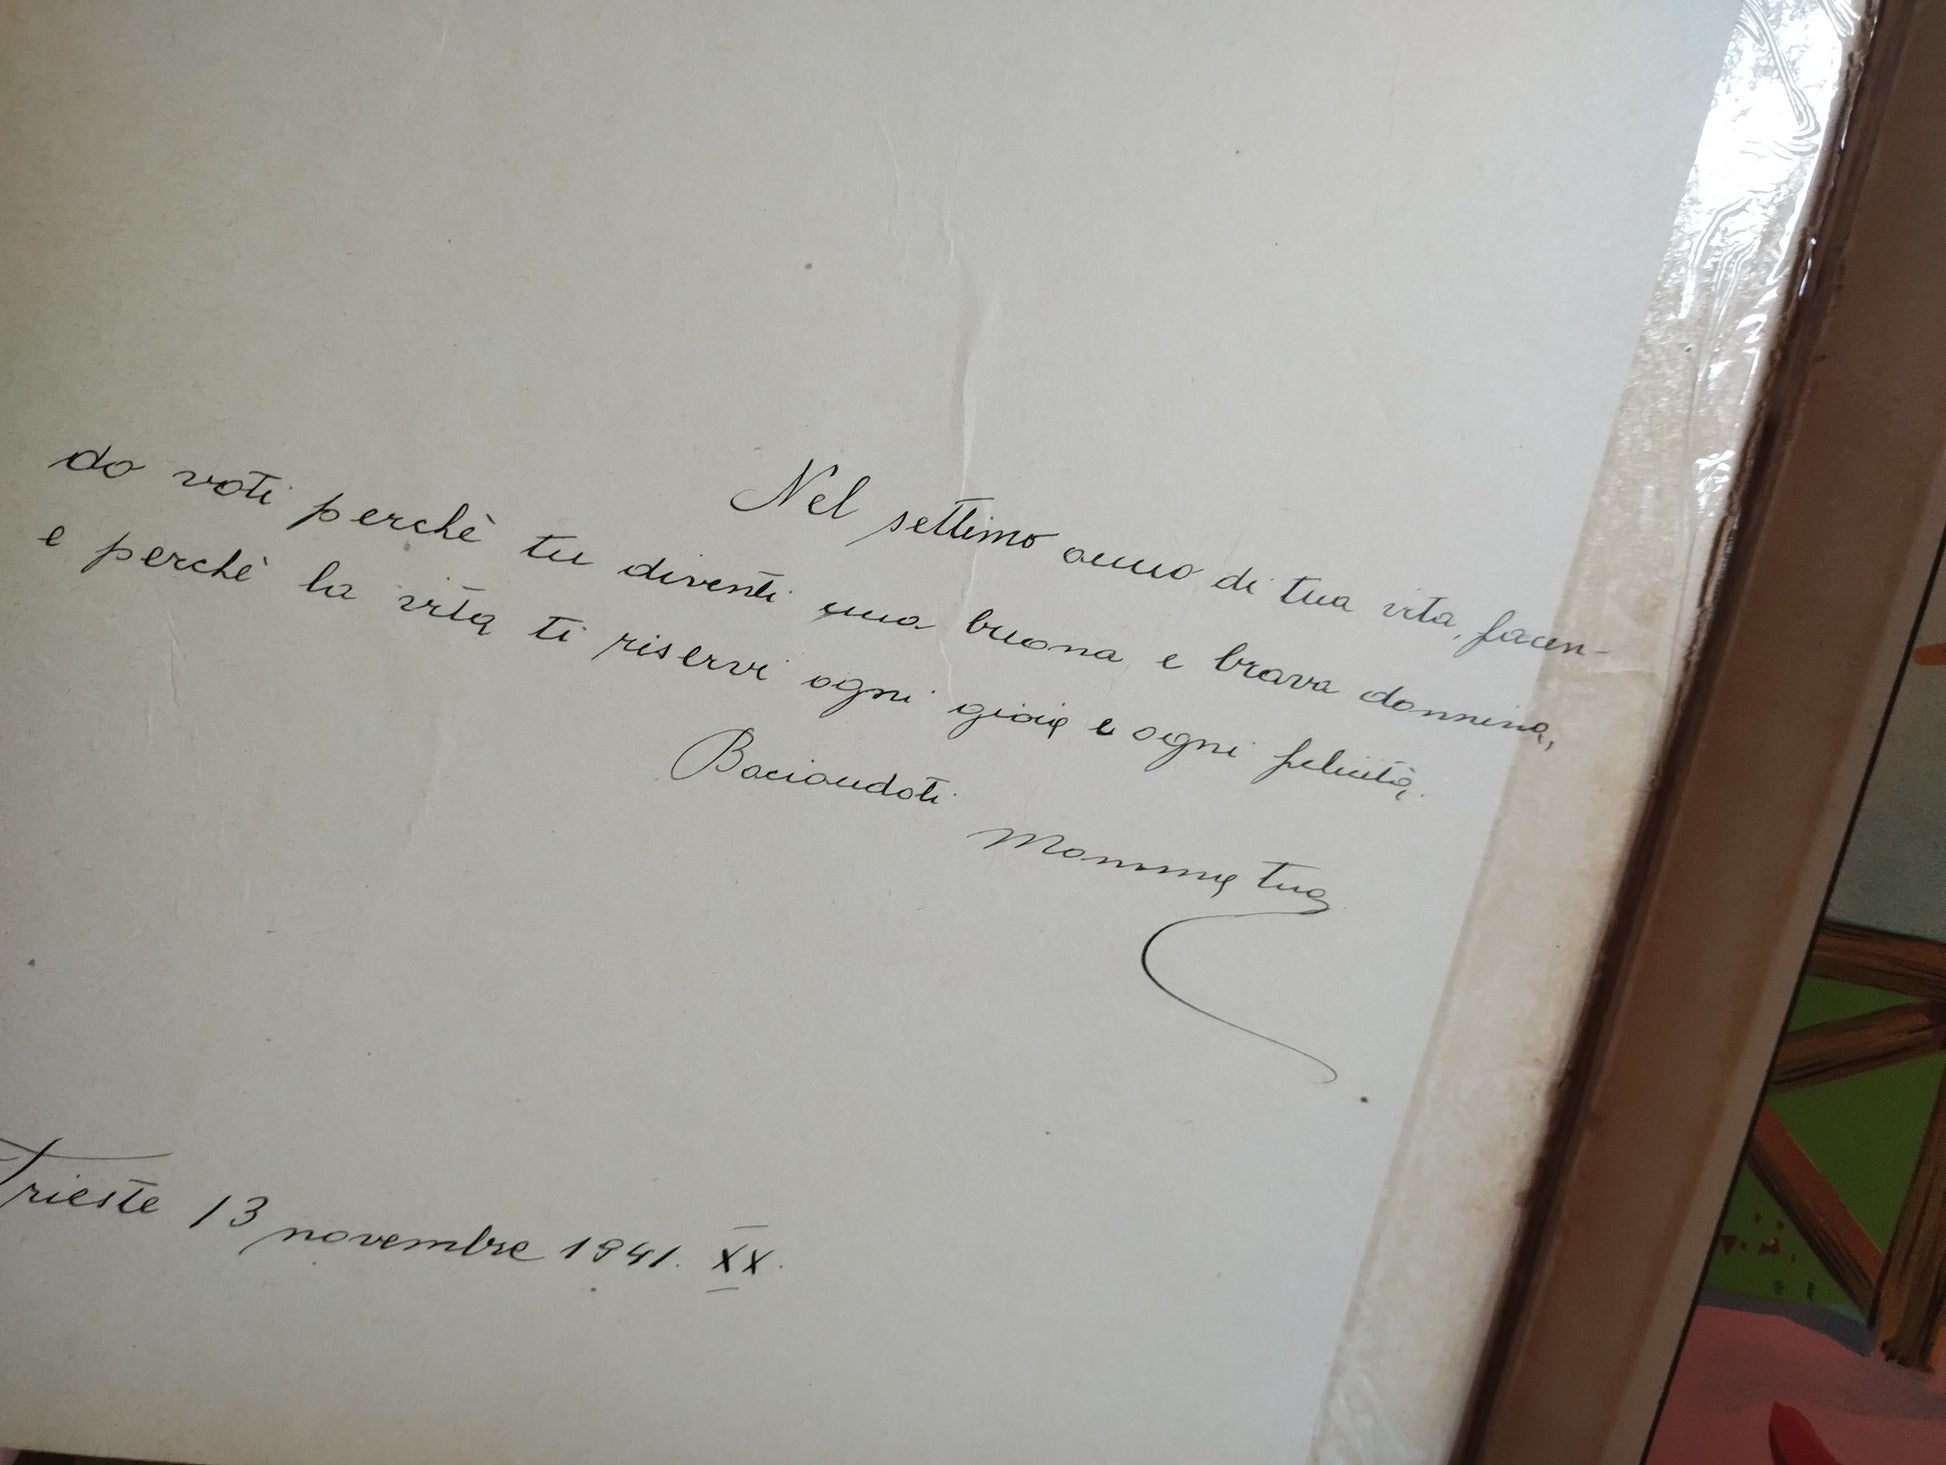 Nel settimo anno di tua vita, facen-
do voti perchè tu diventi una buona e brava donnina,
e perchè la vita ti riservi ogni gioia e ogni felicità.
Baciandoti
Mamma tua
Trieste 13 novembre 1941. XX.